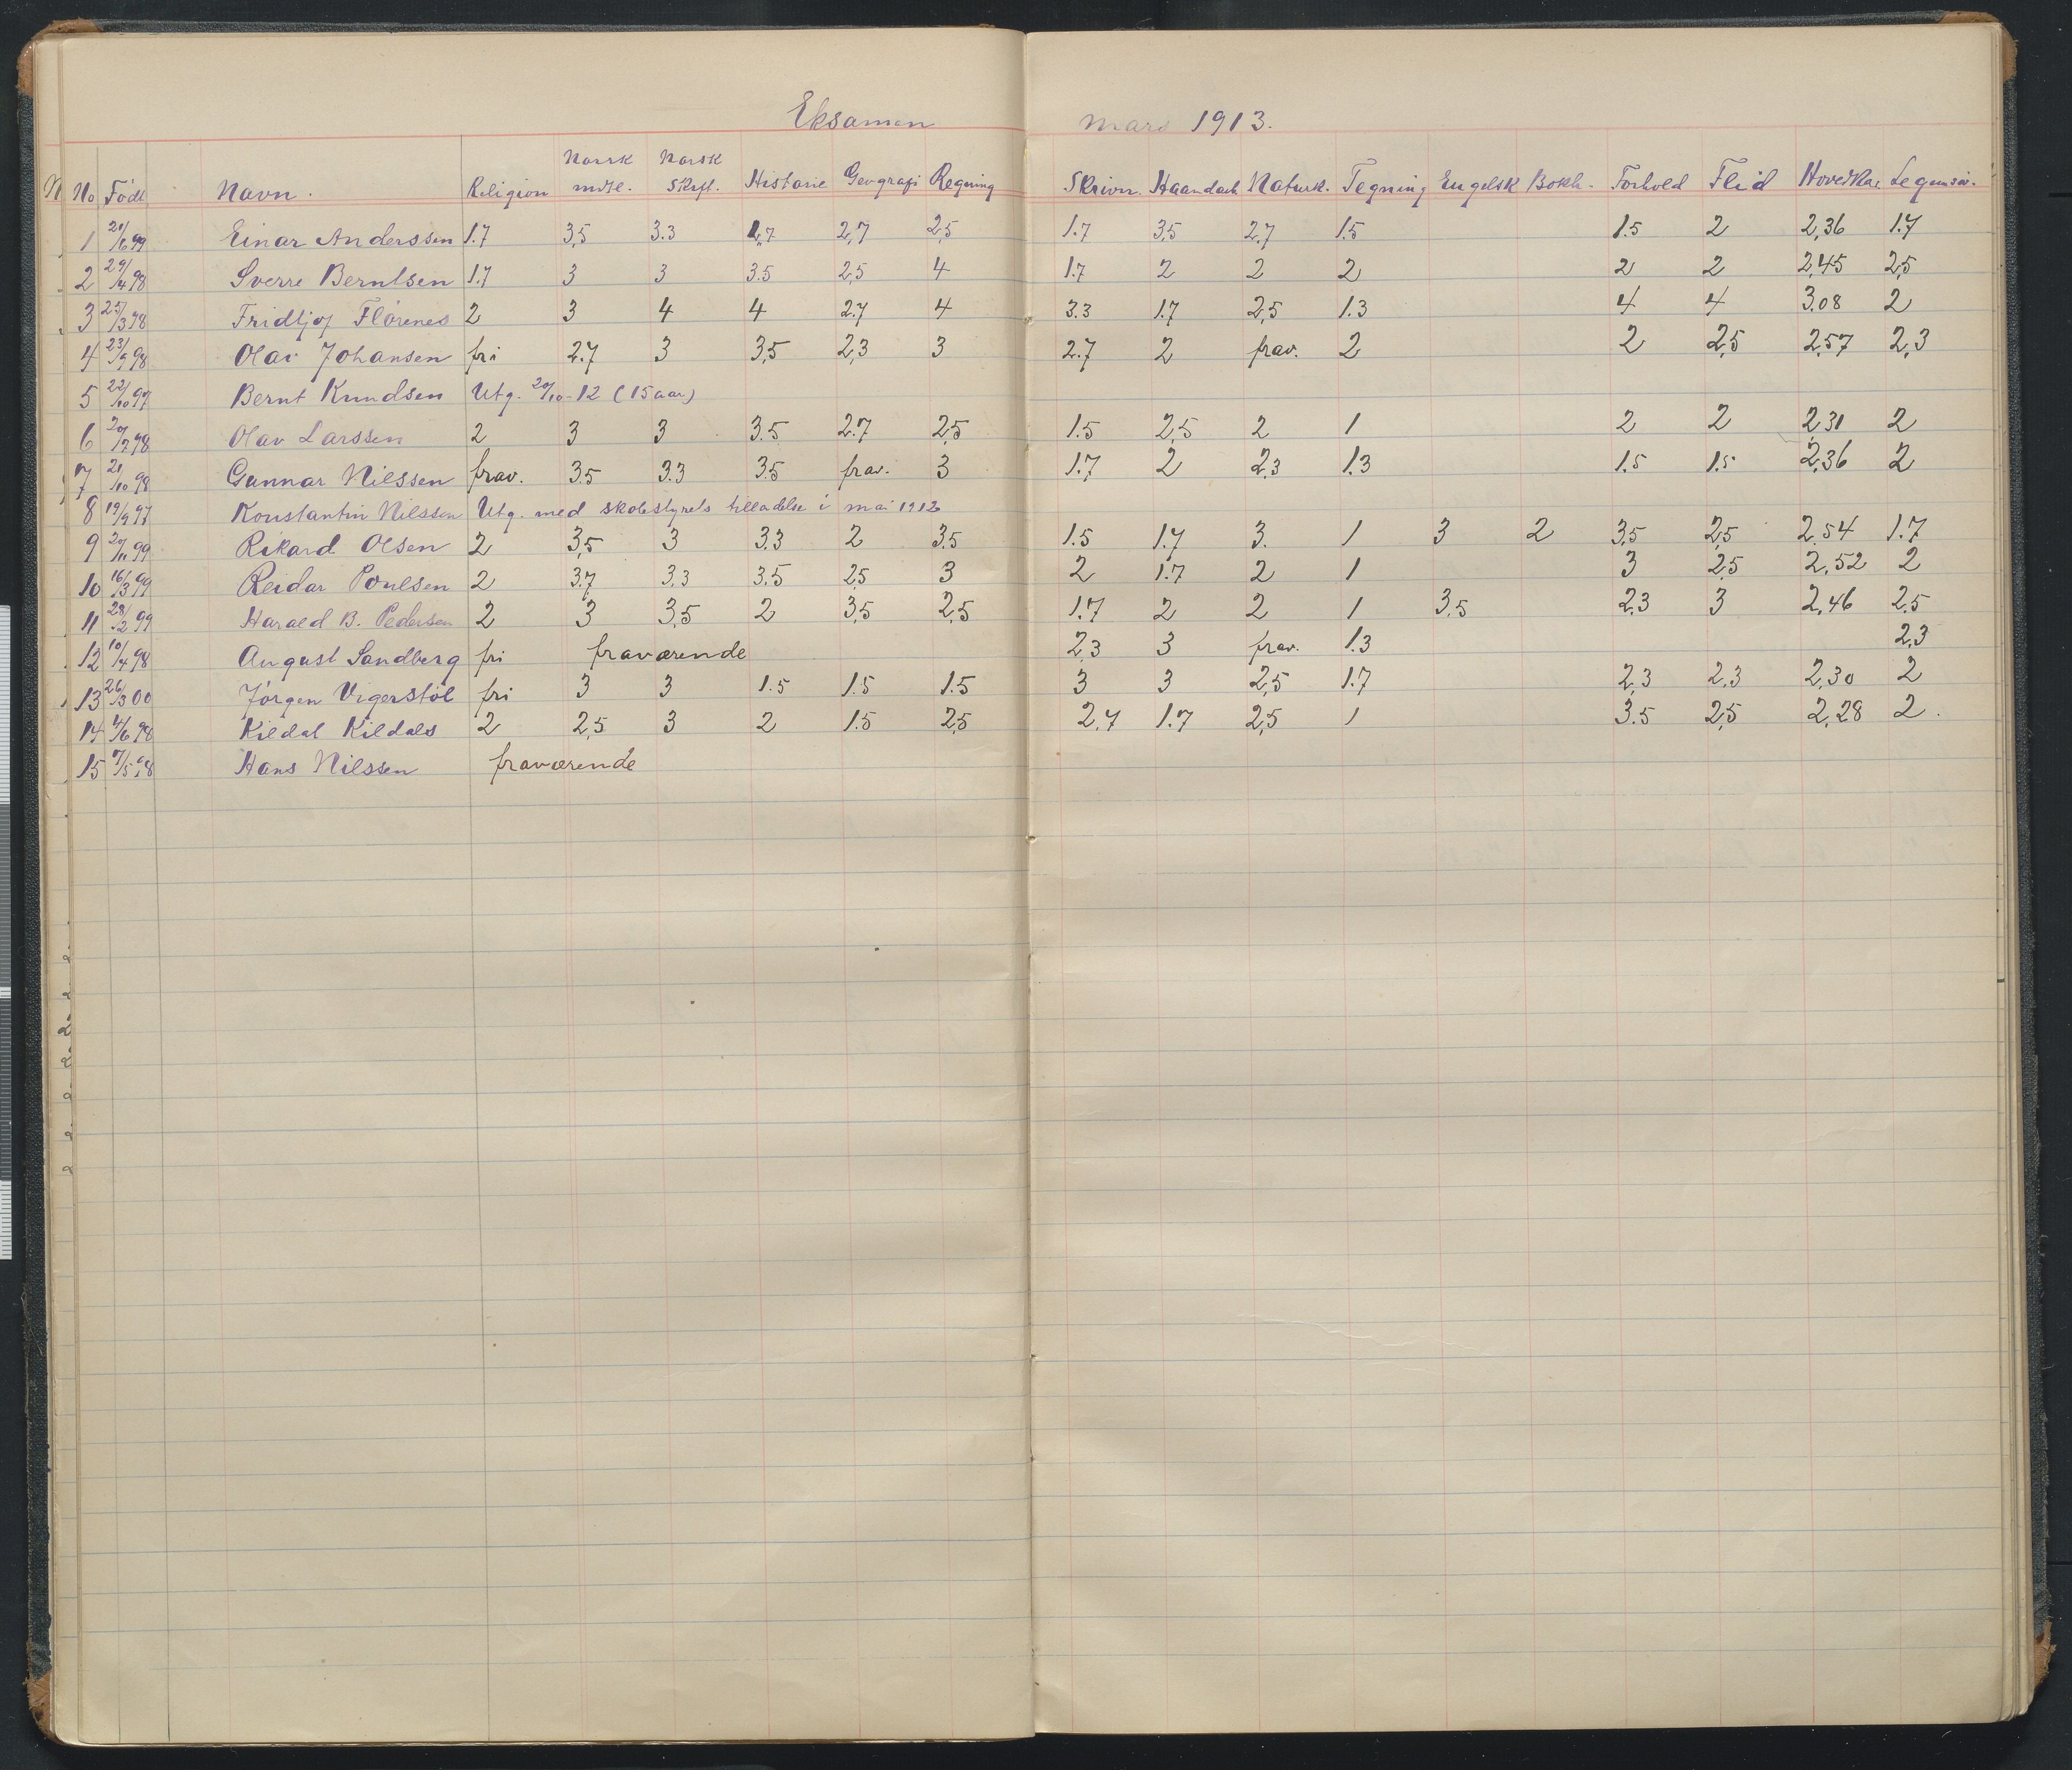 Eksamen mars 1913.
No Født Navn. Religion Norsk mdtl. Norsk skrftl. Historie Geografi Regning Skrivn. Haandarb Naturk. Tegning Engelsk Bokh. Forhold Flid Hovedkar.
1 21/6 99 Einar Anderssen 1.7 3,5 3.3 2,7 2,7 2,5 1.7 3,5 2,7 1.5 1.5 2 2,36 1.7
2 29/4 98 Sverre Berntsen 1.7 3 3 3.5 2,5 4 1.7 2 2 2 2 2 2,45 2,5
3 25/3 98 Fridtjof Flörenes 2 3 4 4 2.7 4 3.3 1.7 2,5 1.3 4 4 3.08 2
4 23/9 98 Olav Johansen fri 2.7 3 3,5 2,3 3 2.7 2 frav. 2 2 2,5 2,57 2,3
5 22/10 97 Bernt Knudsen Utg. 29/10-12 (15 aar)
6 29/7 98 Olav Larssen 2 3 3 3.5 2.7 2,5 1.5 2,5 2 1 2 2 2,31 2
7 21/10 98 Gunnar Nilssen frav. 3.5 3.3 3.5 frav. 3 1.7 2 2,3 1.3 1.5 1.5 2,36 2
8 19/9 97 Konstantin Nilssen Utg. med skolestyrets tilladelse i mai 1912
9 29/11 99 Rikard Olsen 2 3,5 3 3.3 2 3.5 1.5 1.7 3. 1 3 2 3,5 2,5 2,54 1.7
10 16/3 99 Reidar Poulsen 2 3.7 3.3 3.5 2,5 3 2 1.7 2 1 3 2,5 2,52 2
11 28/2 99 Harald B. Pedersen 2 3 3,5 2 3,5 2,5 1.7 2 2 1 3,5 2,3 3 2,46 2,5
12 10/4 98 August Sandberg fri fraværende 2,3 3 frav. 1.3 2,3
13 26/3 00 Jörgen Vigerstöl fri 3 3 1.5 1.5 1.5 3 3 2,5 1.7 2,3 2,3 2,30 2
14 4/6 98 Kildal Kildals 2 2,5 3 2 1.5 2,5 2,7 1.7 2,5 1 3.5 2,5 2,28 2.
15 7/5 98 Hans Nilssen fraværende